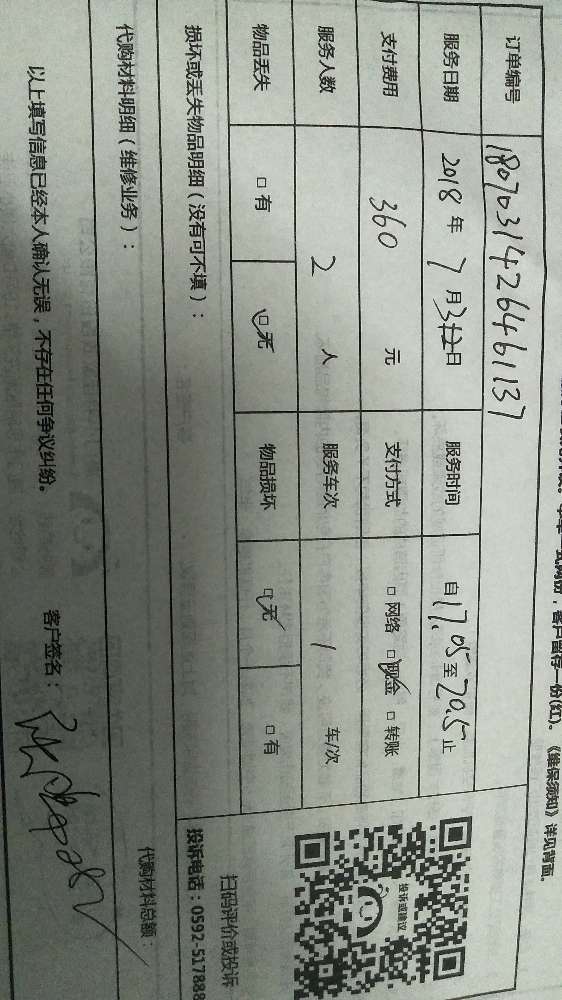 客户留存一份(红)。《维保须知》详见背面.
订单编号 1807031426461137
服务日期 2018年7月3日 服务时间 自17.05至20.5止
支付费用 360元 支付方式 □网络 □现金 □转账
服务人数 2人 服务车次 1车/次
物品丢失 □有 □无 物品损坏 □无 □有
损坏或丢失物品明细（没有可不填）：
代购材料明细（维修业务）：
代购材料总额：
以上填写信息已经本人确认无误，不存在任何争议纠纷。
客户签名：
投诉或建议
扫码评价或投诉
投诉电话：0592-517888